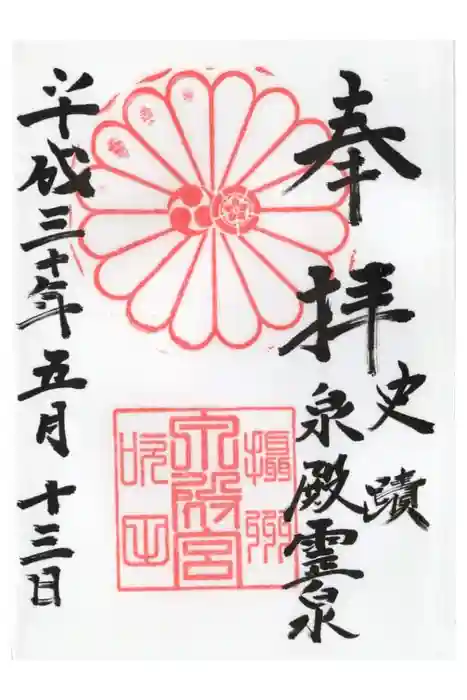 奉拝
史蹟
泉殿霊泉
攝州
泉殿宮
吹田
平成三十年五月十三日